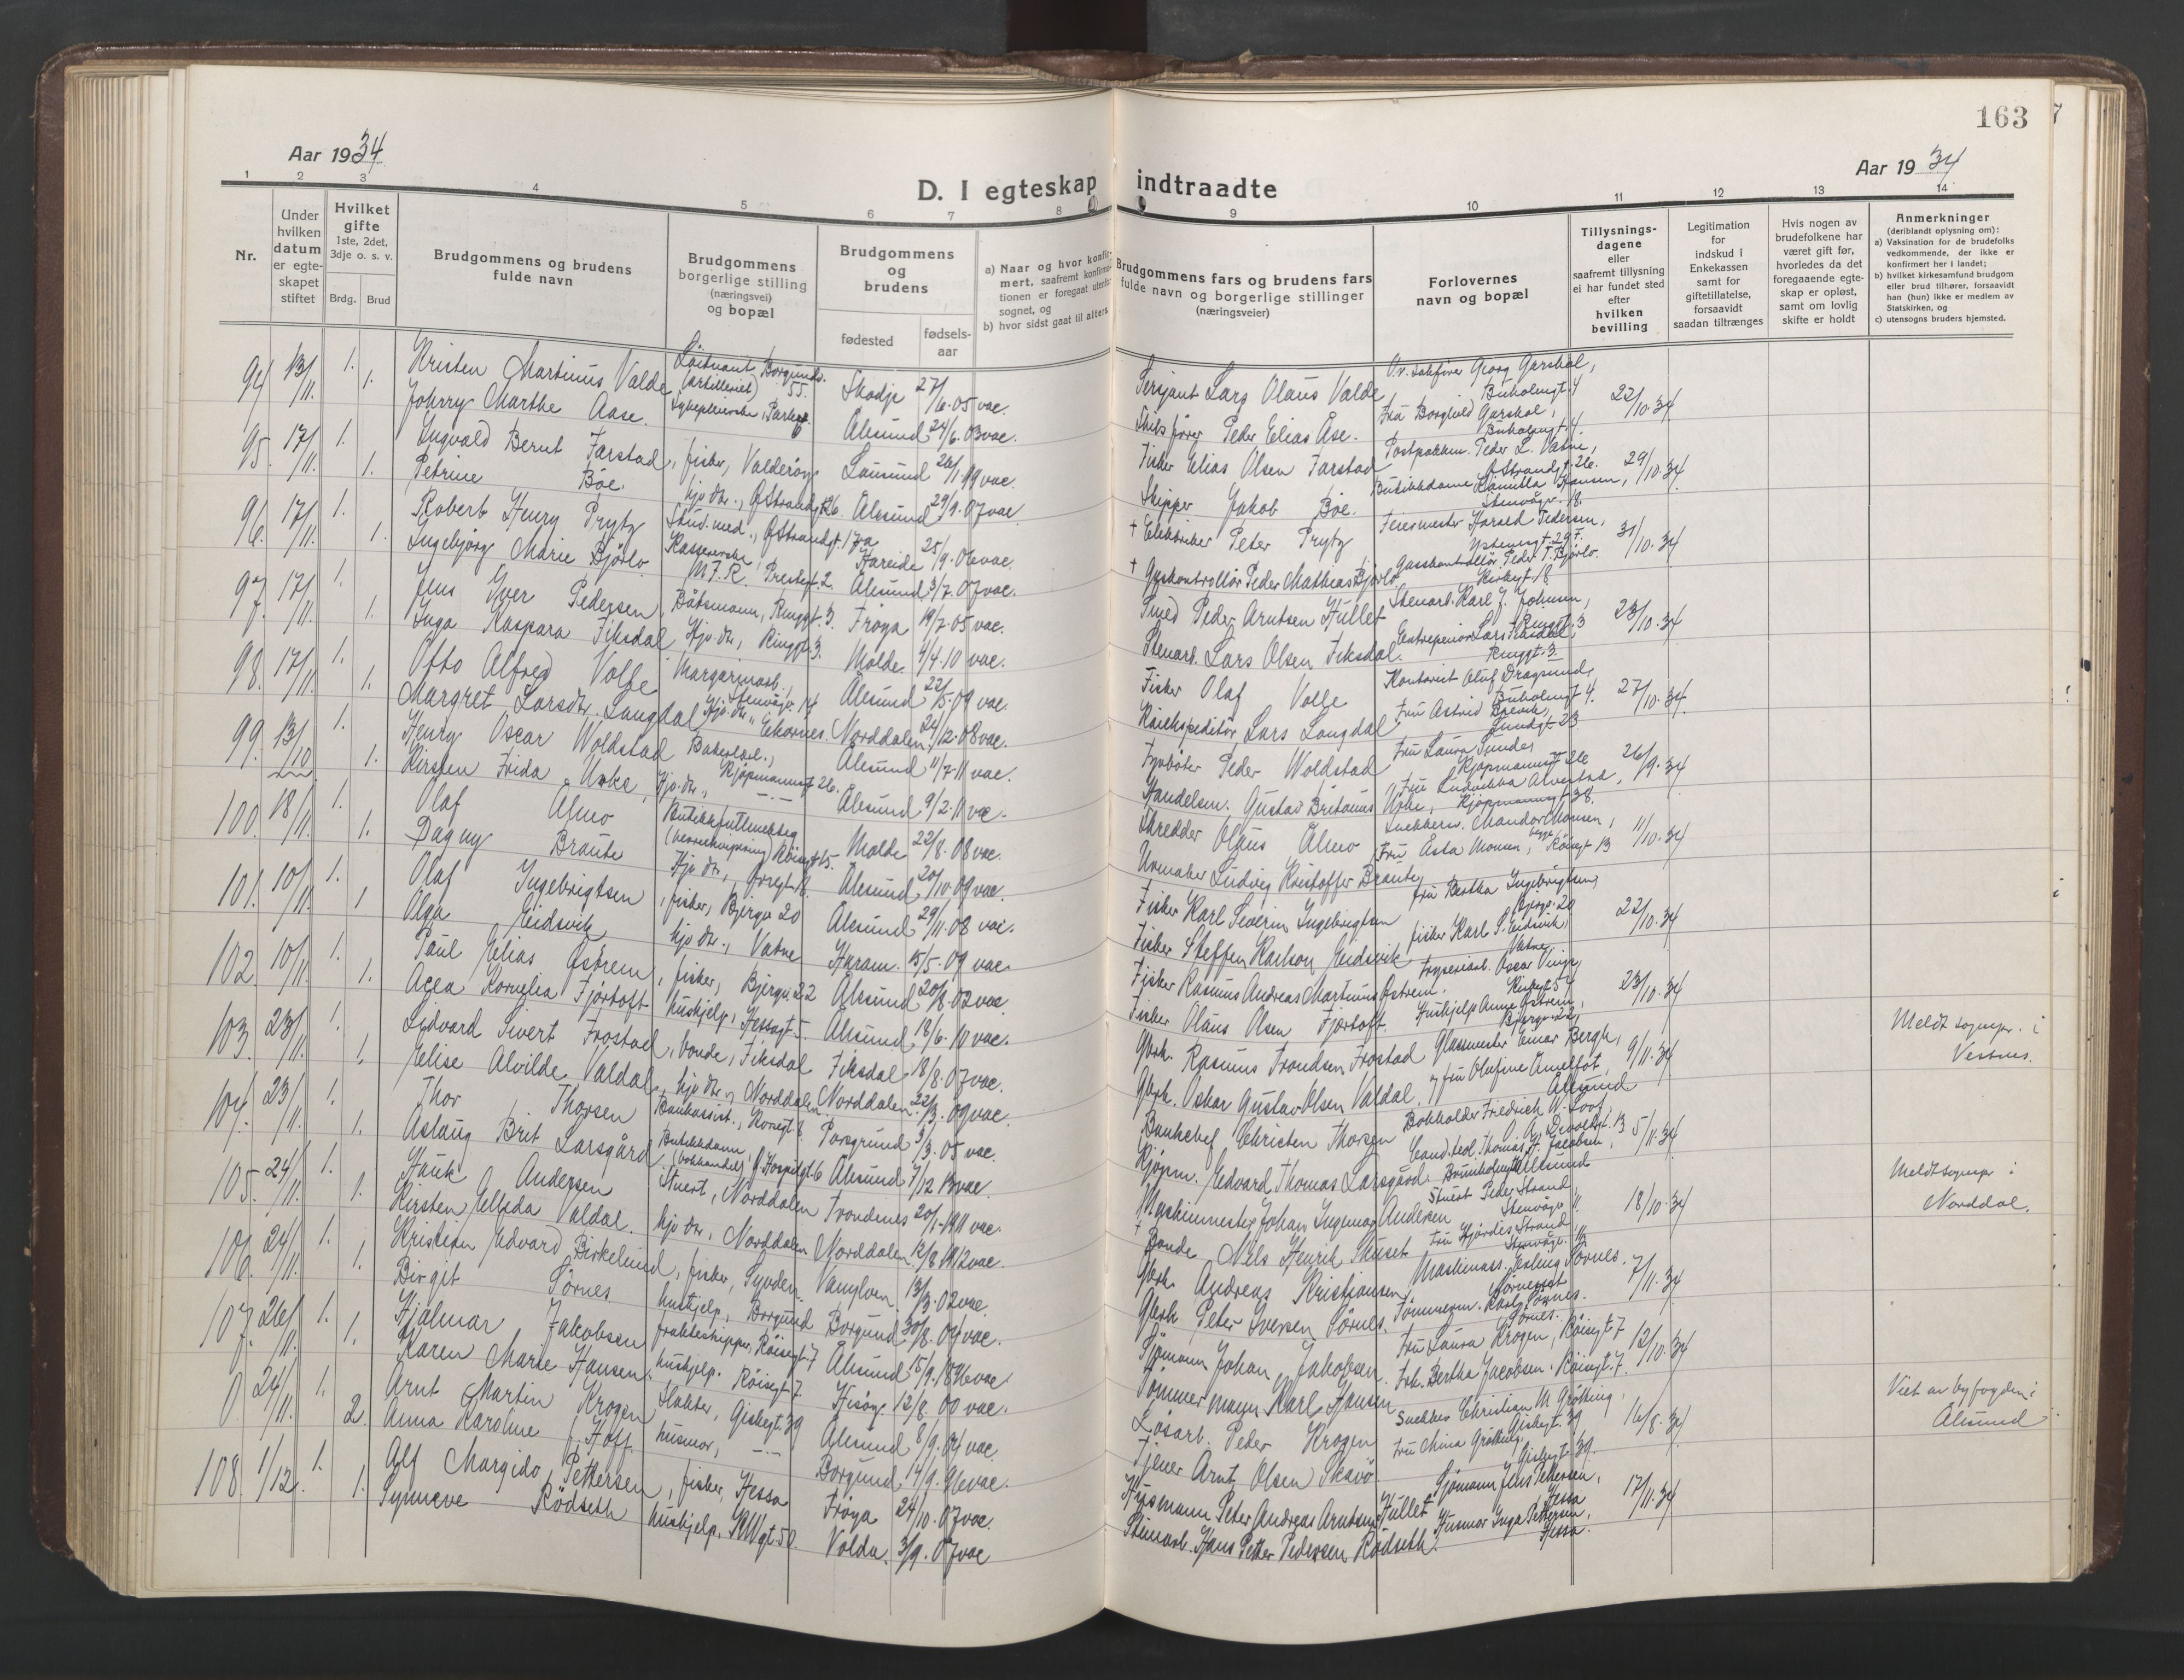 163
Aar 1934
Aar 1934
D. I egteskap indtraadte
1 2 3 4 5 6 7 8 9 10 11 12 13 14
Nr.
Under hvilken datum er egteskapet stiftet
Hvilket gifte 1ste, 2det, 3dje o. s. v.
Brdg. Brud
Brudgommens og brudens fulde navn
Brudgommens borgerlige stilling (næringsvei) og bopæl
Brudgommens og brudens
fødested
fødsels-aar
a) Naar og hvor konfirmert, saafremt konfirmationen er foregaat utenfor sognet, og
b) hvor sidst gaat til alters
Brudgommens fars og brudens fars fulde navn og borgerlige stillinger (næringsveier)
Forlovernes navn og bopæl
Tillysnings-dagene eller saafremt tillysning ei har fundet sted efter hvilken bevilling
Legitimation for indskud i Enkekassen samt for giftetillatelse, forsaavidt saadan tiltrænges
Hvis nogen av brudefolkene har været gift før, hvorledes da det foregaaende egteskap er opløst, samt om lovlig skifte er holdt
Anmerkninger (deriblandt oplysning om):
a) Vaksination for de brudefolks vedkommende, der ikke er konfirmert her i landet;
b) hvilket kirkesamfund brudgom eller brud tilhører, forsaavidt han (hun) ikke er medlem av Statskirken, og
c) utensogns bruders hjemsted.
94 13/11. 1. Kristen Martinus Valde Löitnant (Artilleriet) Borgundv. 55. Skodje 27/6.05 vac. Sersjant Lars Olaus Valde Georg Garshol, Buholmgt. 4 22/10.34
1. Johnny Marthe Aase. Sykepleierske, Parkgt. 6 Ålesund 24/6.03 vac. Skibsförer Peder Elias Åse. Fru Borghild Garshol, Buholmgt. 4.
95. 17/11. 1. Ingvald Bernt Farstad, fisker, Valderöy 26/1.99 vac. Fisker Elias Olsen Farstad Peder L. Vatne, Ö Strandgt. 26. 29/10.34
1. Petrine Böe. hjv. dtr., Ö Strandgt. 26. Ålesund 29/1.07 vac. Skipper Jakob Böe. Butikkdame Kamilla Hansen, Stenvågv. 18.
96. 17/11. 1. Robert Henry Prytz Stud. med., Ö Strandgt. 17a Hareide 25/9.06 vac. † Elektriker Peter Prytz Feiermester Harald Pedersen, 31/10.34
1. Ingebjörg Marie Björlo Kassererske, M.F.R. Prestegt. 2. Ålesund 3/7.07 vac. † Gasskontrollör Peder Mathias Björlo Gasskontrollör Peder T. Björlo. Kirkegt. 18
97. 17/11. 1. Jens Yver Pedersen Båtsmann, Ringgt. 3. Fröya 19/7.05 vac. Smed Peder Arntsen Hullet Stenarb. Karl J. Johnsen, Ringgt. 3 23/10.34
1. Inga Kaspara Fiksdal Hjv. dtr., Ringgt. 3. Molde 4/4.10 vac. Stenarb. Lars Olsen Fiksdal. Entreprenör Lars Fiksdal, Ringgt. 3.
98. 17/11. 1. Otto Alfred Volle Margarinarb., Stenvågv. 14 Ålesund 22/5.09 vac. Fisker Olaf Volle Kontorist Oluf Dragsund, Buholmgt. 4. 27/10.34
1. Margret Larsdtr. Langdal, Hjv. dtr., Ekornes. Norddalen 24/12.08 vac. Lars Langdal Fru Astrid Brevik, Sundgt. 23
99. 13/10 1. Henry Oscar Woldstad Ålesund 11/7.11 vac. Peder Woldstad Fru Laura Sunde, Kjöpmannsgt 26 26/9.34
1. Kirsten Frida Urke, Hjv. dtr., —.— Ålesund 9/2.11 vac. Handelsm. Gustav Britanus Urke, Fru Ludvikka Alvestad, Kjöpmannsgt 38.
100. 18/11. 1. Olaf Almo (herreekvipering) Röisegt. 15. Molde 22/8.08 vac. Skredder Olaus Almo Snekkerm. Mandor Monsen, 11/10.34
1. Dagny Braute Hjv. dtr., 18. Ålesund 20/10.09 vac. Urmaker Ludvig Kristoffer Braute Fru Asta Monsen, begge Röisegt 13
101. 10/11. 1. Olaf Ingebrigtsen, fisker, Bjergv. 20 Ålesund 29/11.08 vac. Fisker Karl Severin Ingebrigtsen Fru Bertha Ingebrigtsen, Bjergv. 20 22/10.34
1. Olga Eidsvik hjv. dtr., Vatne Haram. 15/5.09 vac. Fisker Steffen Karlson Eidsvik fisker Karl S. Eidsvik, Vatne.
102. 10/11. 1. Paul Elias Östrem, fisker, Bjergv. 22 Ålesund 20/8.02 vac. Fisker Rasmus Andreas Martinus Östrem. Fryseriarb. Oscar Vinje, Kirkegt 54 23/10.34
1. Agea Kornelia Fjörtoft huskjelp, Hessagt. 5. Ålesund 18/6.10 vac. Fisker Olaus Olsen Fjörtoft. Huskjelp Anna Östrem, Bjergv. 22,
103. 23/11. 1. Sidvard Sivert Frostad, bonde, Fiksdal Fiksdal 18/8.07 vac. Gbrk. Rasmus Trondsen Frostad Glassmester Einar Bergh, 9/11.34 Meldt sognepr. i Vestnes.
1. Elise Alvilde Valdal, hjv. dtr., Norddalen Norddalen 22/3.09 vac. Gbrk. Oskar Gustav Olsen Valdal. og fru Olufine Amelfot, Ålesund
104. 23/11. 1. Thor Thorsen Bankassist., 6. Porsgrund 3/3.05 vac. Bankchef Christen Thorsen Bokholder Friedrich W. Loof, O. A. Devoldgt. 13 5/11.34
1. Aslaug Brit Larsgård Butikkdame, (bokhandel) Hospitalgt. 6 Ålesund 7/12.13 vac. Kjöpm. Edvard Thomas Larsgård. Cand. teol. Thomas F. Jacobsen,
105. 24/11. 1. Hauk Andersen Stuert, Norddalen Trondenes 20/1.1911 vac. Maskinmester Johan Ingemar Andersen Stuert Peder Strand Stenvågv. 11. 18/10.34 Meldt sognepr. i Norddal.
1. Kirsten Ellida Valdal. hjv. dtr., Norddalen Norddalen 12/8.1912 vac. † Bonde Nils Henrik Fru Hjördis Strand
106. 24/11. 1. Kristian Edvard Birkelund, fisker, Syvden. Vanylven. 13/3.02 vac. Gbrk. Andreas Kristiansen, Maskinass. Erling Sörnes. 7/11.34
1. Birgit Sörnes huskjelp, Borgund Borgund 30/8.04 vac. Gbrk Peter Iversen Sörnes. Tömmerm. Karl Sörnes. Sörnes.
107. 26/11. 1. Hjalmar Jakobsen fraktskipper, Röisegt. 7 Ålesund 15/9.1896 vac. Sjömann Johan Jakobsen Fru Laura Krogen, Röisegt. 7 12/10.34
1. Karen Marie Hansen. huskjelp. Röisegt 7. Hisöy. 12/8.00 vac. Tömmermann Karl Hansen. Frk. Bertha Jacobsen. Röisegt. 7.
0. 24/11. 1. Arnt Martin Krogen Slakter, Giskegt. 39 Ålesund 8/9.04 vac. Lösarb. Peder Krogen Snekker Christian M Grötting, Giskegt. 39 16/8.34 Viet av byfogden i Ålesund
2. Anna Karoline f. Hoff. husmor, —.— Borgund 14/9.96 vac. Tjener Arnt Olsen Skavö Fru Mina Grötting, Giskegt. 39.
108. 1/12. 1. Alf Margido Pettersen, fisker, Hessa Fröya 24/10.07 vac. Husmann Peter Andreas Arntsen Hullet Sjömann Jens Pettersen, Hessa 17/11.34
1. Synnöve Rödseth huskjelp, K.Wgt. 50. Volda. 3/9.07 vac Stenarb. Hans Petter Pedersen Rödseth. Husmor Inga Pettersen, Hessa.